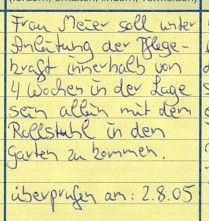 Frau Meier soll unter
Anleitung der Pflege-
kraft innerhalb von
4 Wochen in der Lage
sein allein mit dem
Rollstuhl in den
Garten zu kommen.
überprüfen am: 2.8.05